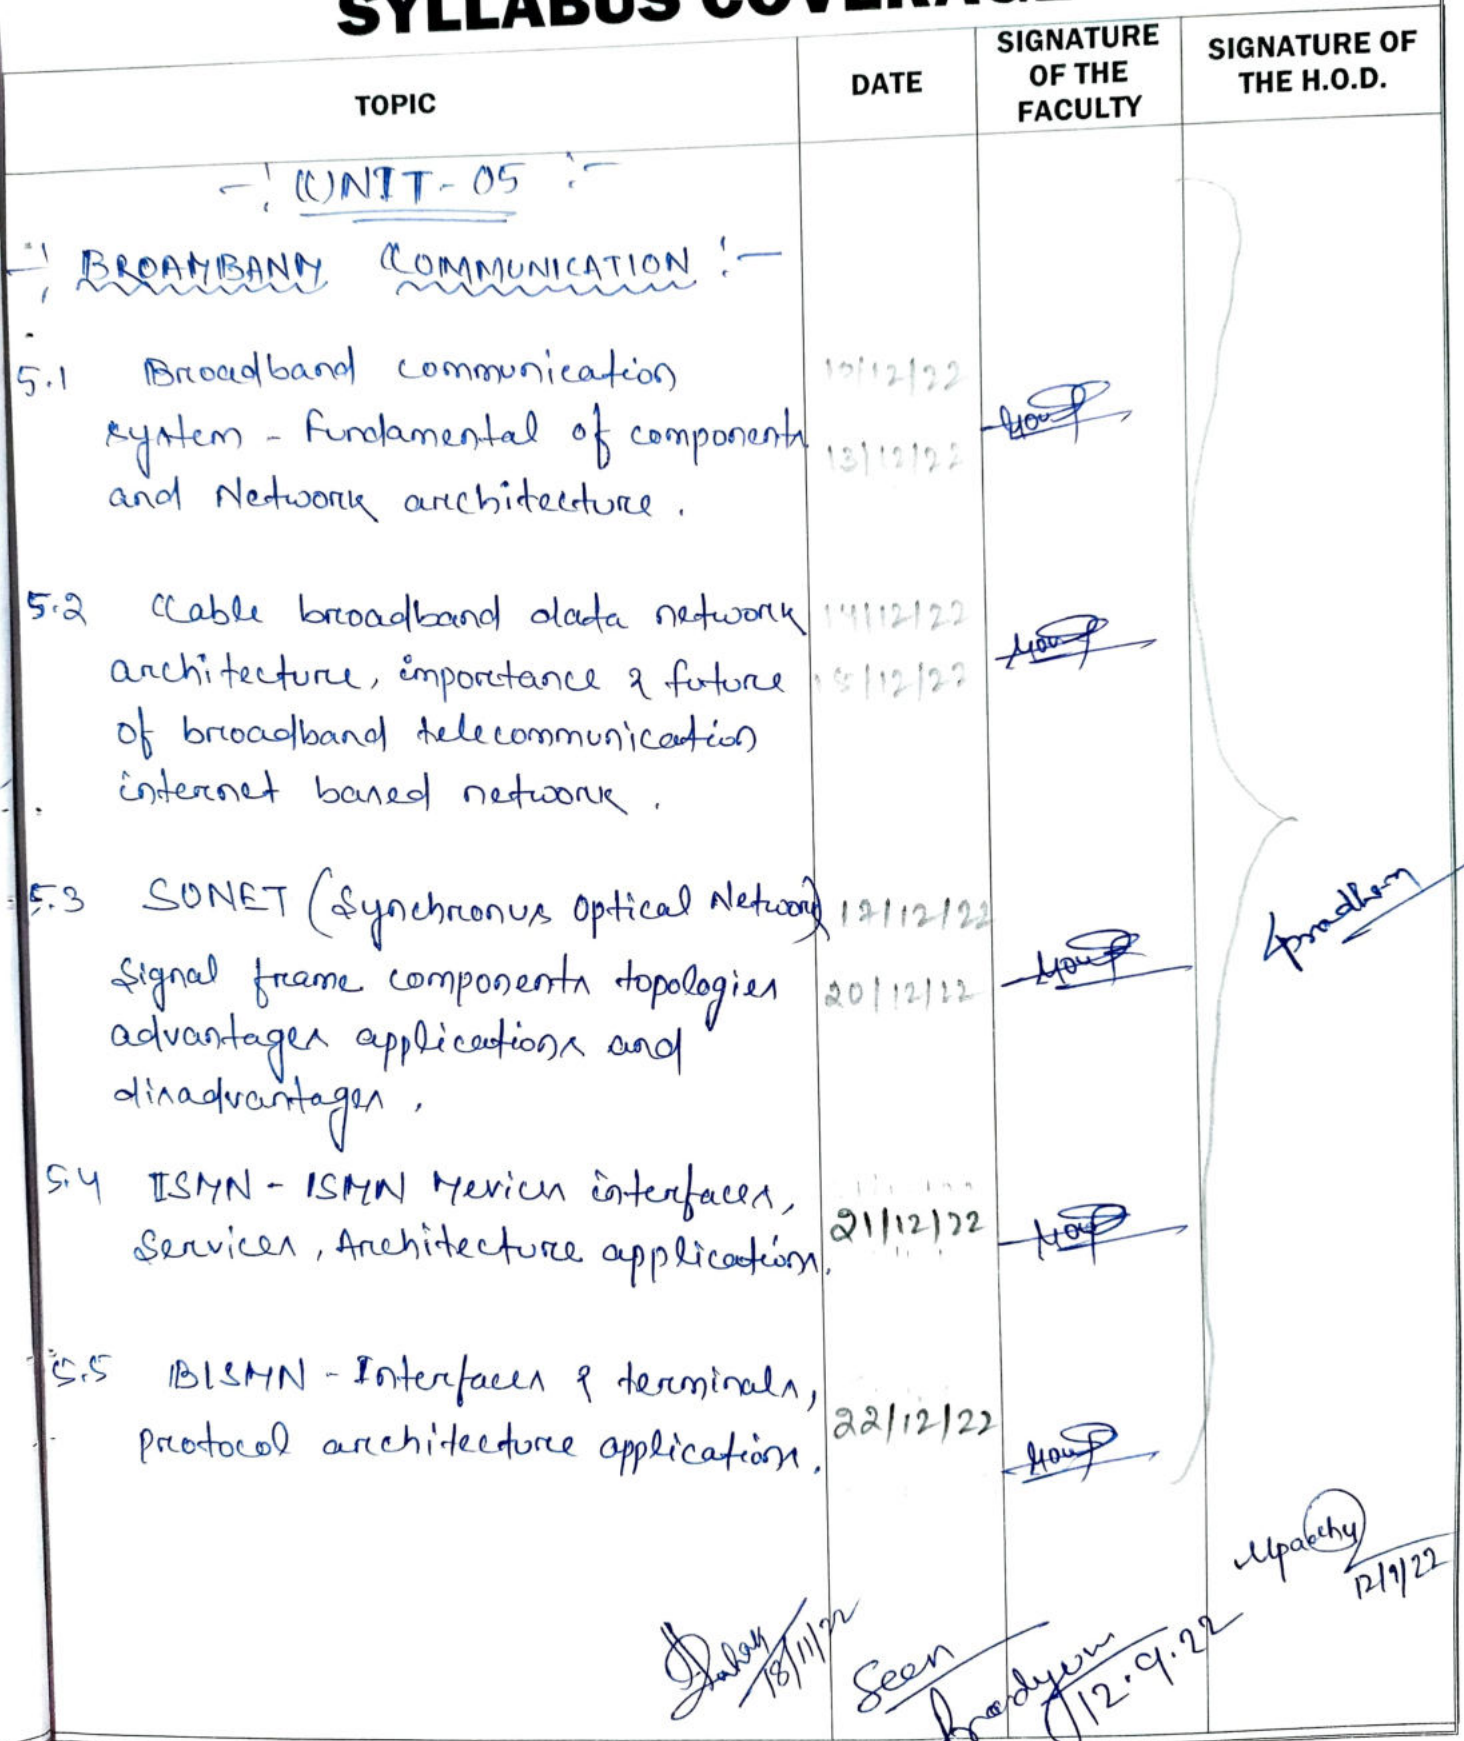 SYLLABUS COVERAGE
TOPIC
DATE
SIGNATURE
OF THE
FACULTY
SIGNATURE OF
THE H.O.D.
-: UNIT-05 :-
-: BROADBAND COMMUNICATION :-
5.1 Broadband communication
system - Fundamental of components
and Network architecture.
12/12/22
13/12/22
5.2 Cable broadband data network
architecture, importance & future
of broadband telecommunication
internet based network.
14/12/22
/12/22
5.3 SONET (Synchronus Optical Network)
Signal frame components topologies
advantages applications and
disadvantages.
/12/22
20/12/22
5.4 ISDN - ISDN Devices interfaces,
Services, Architecture application.
21/12/22
5.5 BISDN - Interfaces & terminals,
Protocol architecture application.
22/12/22
Pradhan
12/9/22
18/11/22
Seen
12.9.22